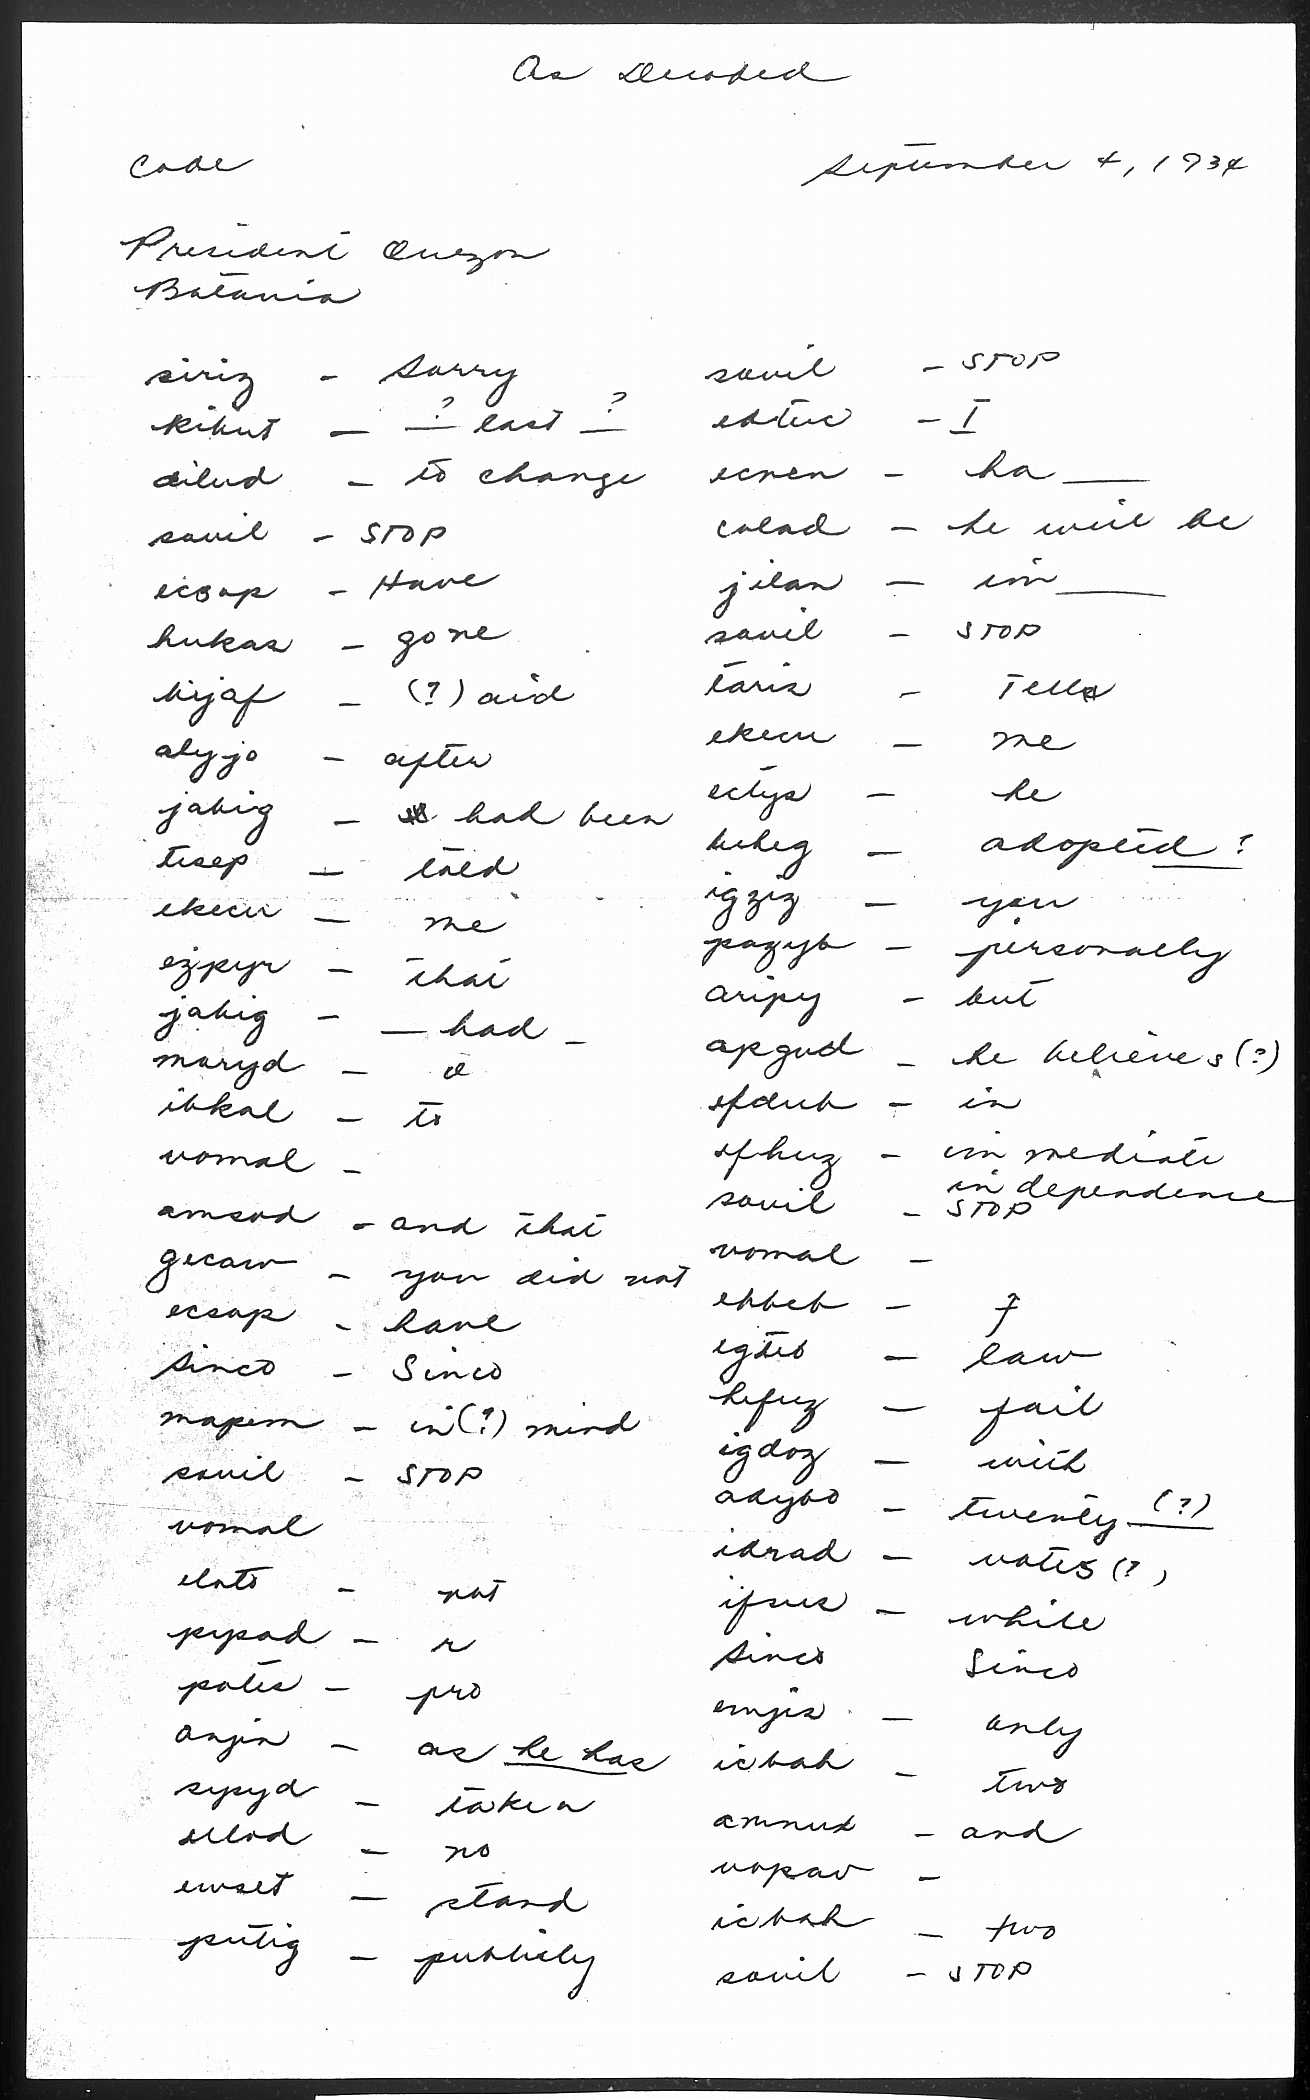 As Decoded
Code
September 4, 1934
President Quezon
Batavia
siriz - Sorry
kihut - ? last ?
dilud - to change
savil - STOP
ecsap - Have
hukas - gone
bijaf - (?) aid
alyjo - after
jabig - had been
tisep - told
ekecu - me
ezpyr - that
jabig - had -
maryd - d
ibkal - to
vomal -
amsod - and that
gecaw - you did not
ecsap - have
sinco - Sinco
mapem - in(?) mind
savil - STOP
vomal
elato - not
pypad - r
potes - pro
anjin - as he has
sysyd - taken
sllod - no
ewset - stand
putig - publicly
savil - STOP
ebtuc - I
ecnen - ha
calad - he will be
jilan - im
savil - STOP
taris - Tells
ekecu - me
ectys - he
buheg - adopted ?
igziz - you
pazyb - personally
aripy - but
apgud - he believes (?)
efdub - in
efhuz - immediate
independence
savil - STOP
vomal -
ebbeb - f
egteb - law
hefuz - fail
igdoz - with
adybo - twenty (?)
idrad - votes (?)
ifsus - while
sinco Sinco
emjis - only
icbah - two
amnux - and
vopav -
icbah - two
savil - STOP